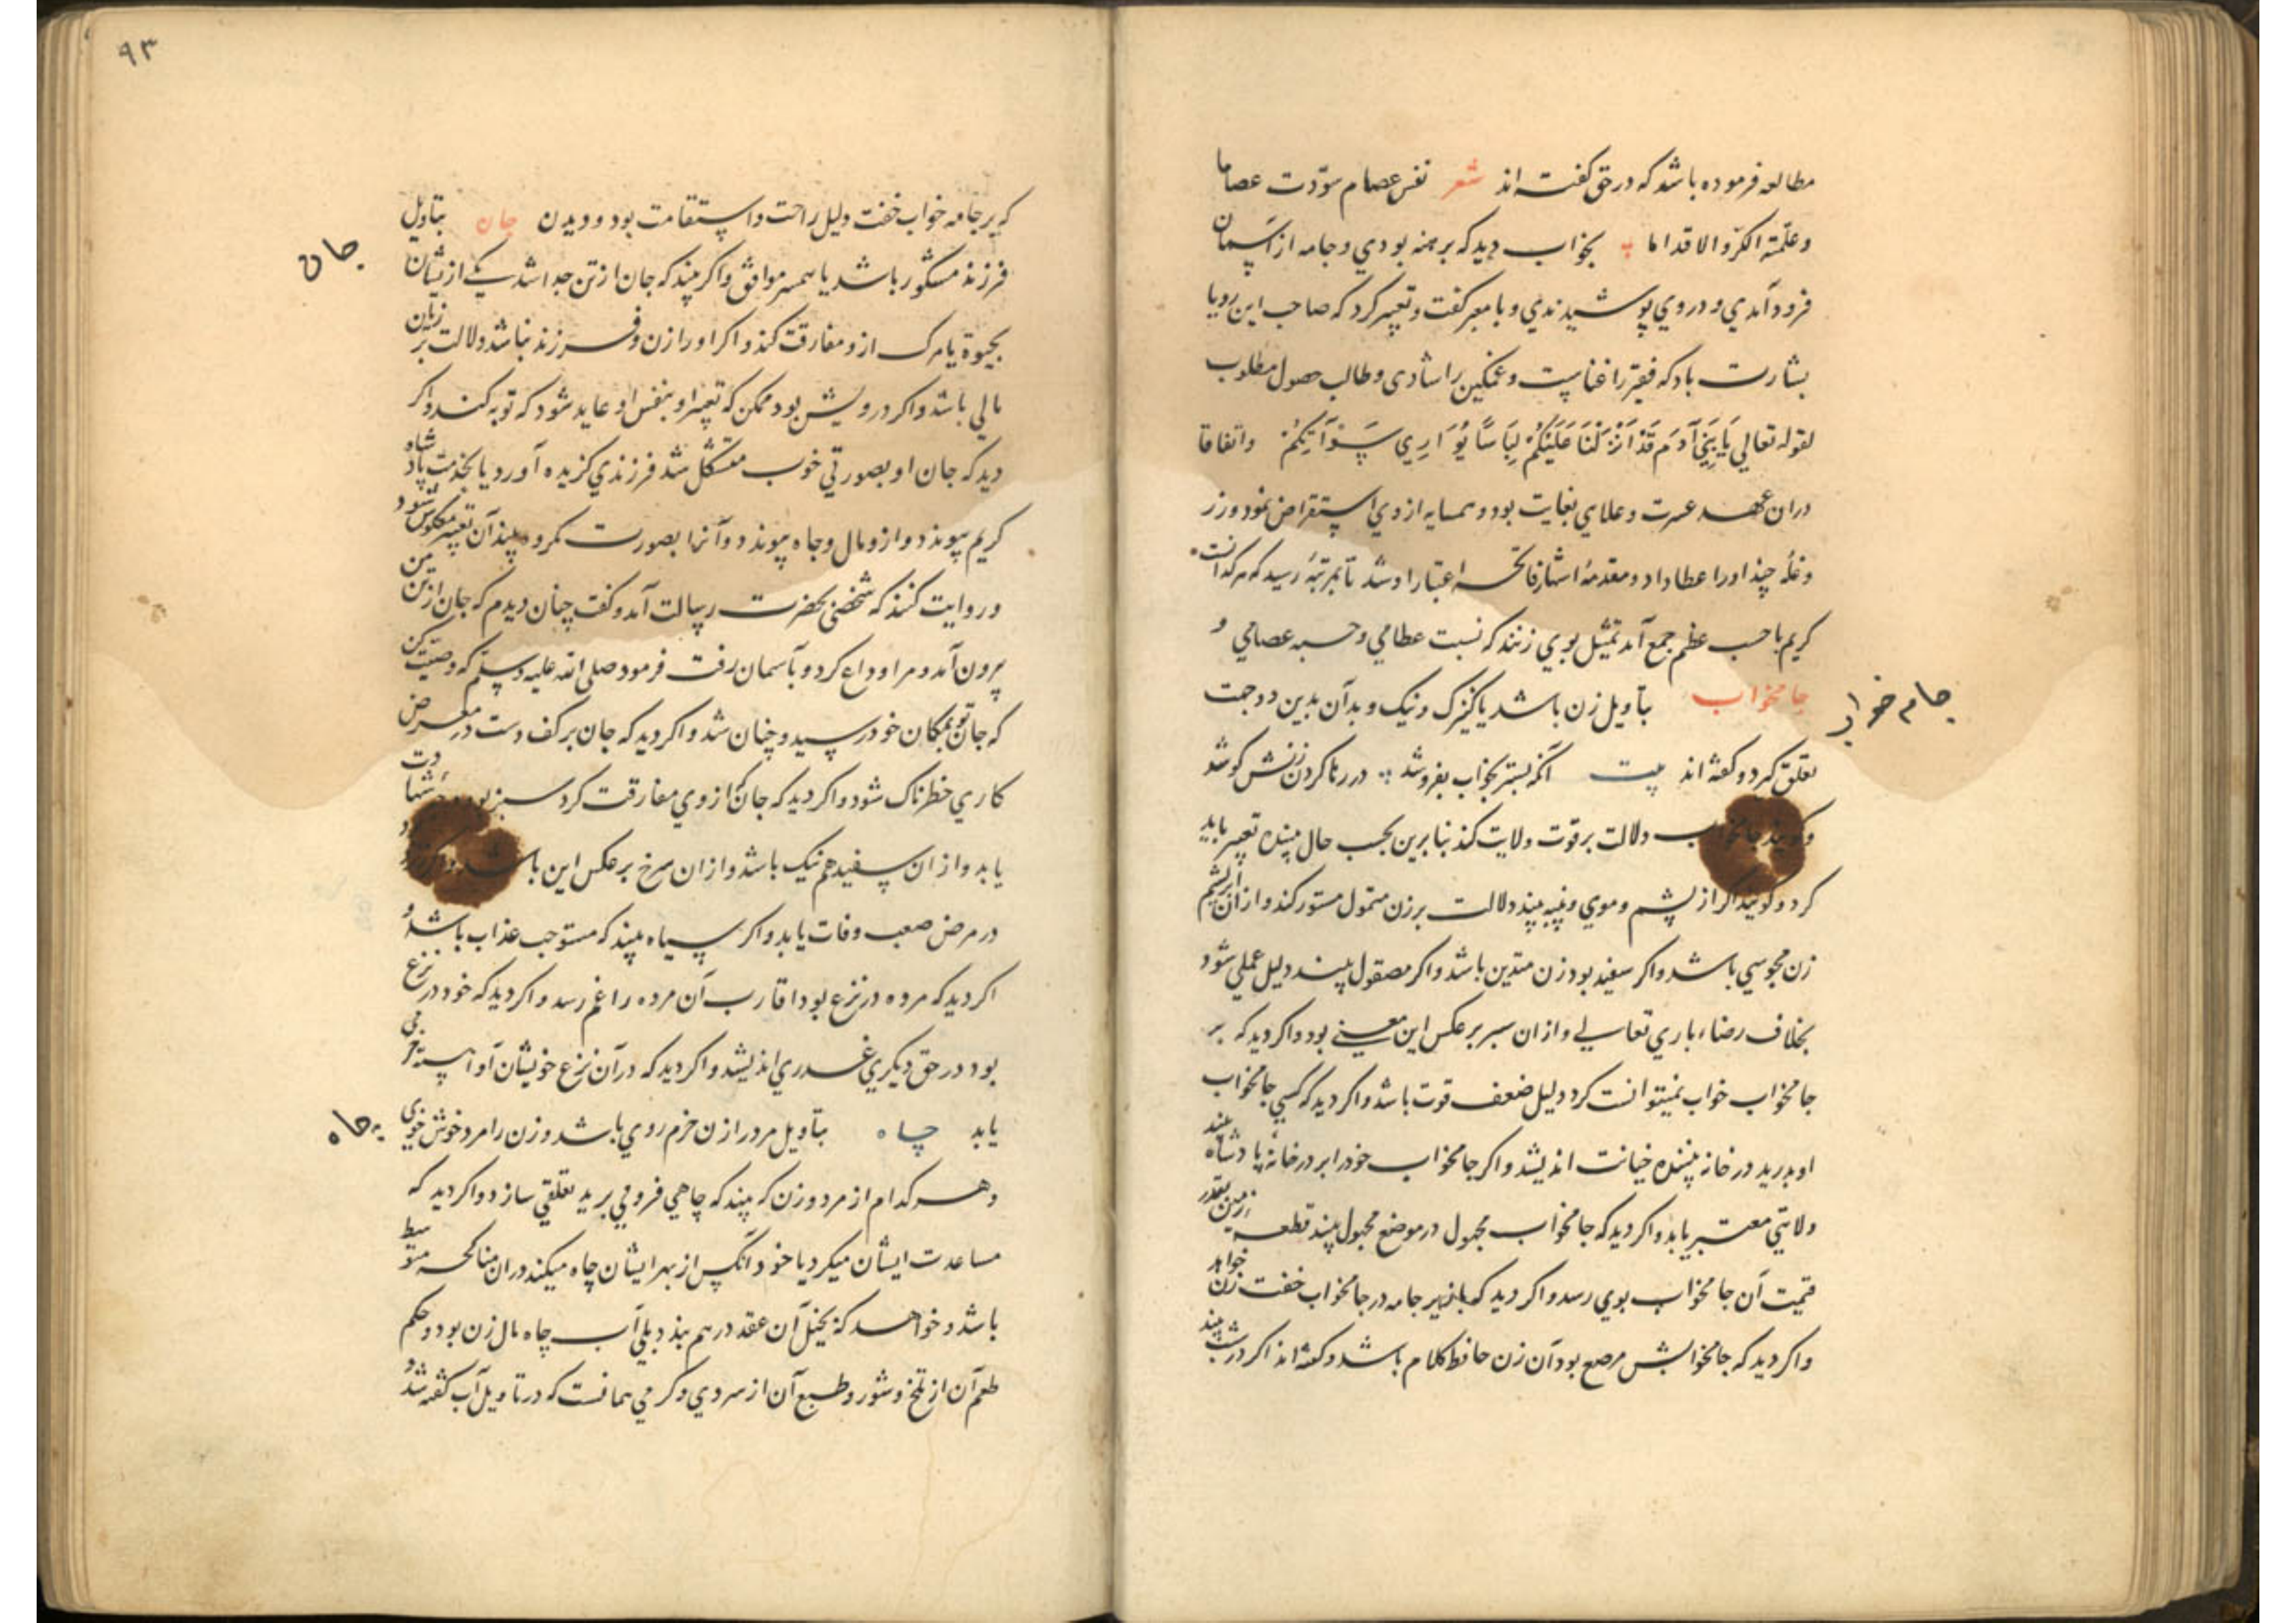 مطالعه فرموده باشد که در حق گفته اند شعر نفس عصام سوّدت عصاما
وعلّمته الکرّ والاقداما بخواب دید که برهنه بودی و جامه از آسمان
فرود آمدی و در وی پوشیدندی و با معبر گفت و تعبیر کرد که صاحب این رویا
بشارت باد که فقیر را غناست و غمکین را شادی و طالب حصول مطلوب
لقوله تعالی یَا بَنِی آدَمَ قَدْ اَنْزَلْنَا عَلَیْکُمْ لِبَاسًا یُوَارِی سَوْآتِکُمْ واتفاقا
دران عهد عسرت و غلای بغایت بود و همسایه از وی استقراض نمود و زر
و غله چند او را عطا داد و مقدمهٔ اشتهار فاتحه اعتبار او شد تا بمرتبهٔ رسید که هر کرا نسب
کریم با حسب عظم جمع آمد تمثیل بوی زنند که نسبت عظامی و حسبه عصامی و
جامخواب بتاویل زن باشد یا کنیزک و نیک و بد آن بدین دو جهت
جام خواب
تعلق کرد و گفته اند بیت آنکه بستر بخواب بفروشد در رها کردن زنش کوشد
و کویند جامخواب دلالت بر قوت ولایت کند بنابرین بحسب حال بیننده تعبیر باید
کرد و کویند اکر از پشم و موی و پنبه بیند دلالت بر زن متمول مستور کند و از ان ابریشم
زن مجوسی باشد و اکر سفید بود زن متدین باشد و اکر مصقول بیند دلیل عملی شود
بخلاف رضاء باری تعالی و از ان سبز بر عکس این معنی بود و اکر دید که بر
جامخواب خواب نمیتوانست کرد دلیل ضعف قوت باشد و اکر دید که کسی جامخواب
او بدرید در خانه بیننده خیانت اندیشد و اکر جامخواب خود را بر در خانهٔ پادشاه بیند
ولایتی معتبر یابد و اکر دید که جامخواب مجهول در موضع مجهول بیند قطعه زمین بقدر
قیمت آن جامخواب بوی رسد و اکر دید که با زیر جامه در جامخواب خفت زن خواهد
و اکر دید که جامخوابش مرصع بود آن زن حافظ کلام باشد و گفته اند اکر در شب بیند
۹۳
که بر جامه خواب خفت دلیل راحت و استقامت بود و دیدن جان بتاویل
جان
فرزند مشکور باشد یا همسر موافق و اکر بیند که جان از تن جدا شد یکی از یشان
بحیوة یا مرک از و مفارقت کند و اکر او را زن و فرزند نباشد دلالت بر زیان
مالی باشد و اکر درویش بود ممکن که تعبیر او بنفس او عاید شود که توبه کند و اکر
دید که جان او بصورتی خوب متشکل شد فرزندی کزیده آورد یا بخدمت پادشاه
کریم پیوندد و از و مال و جاه پیوندد و آنرا بصورت مکروه بیند آن تعبیر معکوس شود
و روایت کنند که شخصی بحضرت رسالت آمد و گفت چنان دیدم که جان از تن من
برون آمد و مرا وداع کرد و بآسمان رفت فرمود صلی الله علیه وسلم که وصیت کن
که جان تو بمکان خود رسید و چنان شد و اکر دید که جان بر کف دست در معرض
کاری خطرناک شود و اکر دید که جان از وی مفارقت کرد سبز بود درجهٔ شهادت
یابد و از ان سفید هم نیک باشد و از ان سرخ بر عکس این باشد
در مرض صعب وفات یابد و اکر سیاه بیند که مستوجب عذاب باشد و
اکر دید که مرده در نزع بود اقارب آن مرده را غم رسد و اکر دید که خود در نزع
بود در حق دیکری غدری اندیشد و اکر دید که در آن نزع خویشان
یابد چاه بتاویل مرد را زن خرم روی باشد و زن را مرد خوش خوی
چاه
و هر کدام از مرد و زن که بیند که چاهی فرو می برید تعلقی سازد و اکر دید که
مساعدت ایشان میکرد یا خود آنکس از بهر ایشان چاه میکند دران مناکحه متوسط
باشد و خواهد که بحیل آن عقد در هم بندد بلی آب چاه مال زن بود و حکم
طعم آن از تلخ و شور و طبع آن از سردی و کرمی همانست که در تاویل آب گفته شد و